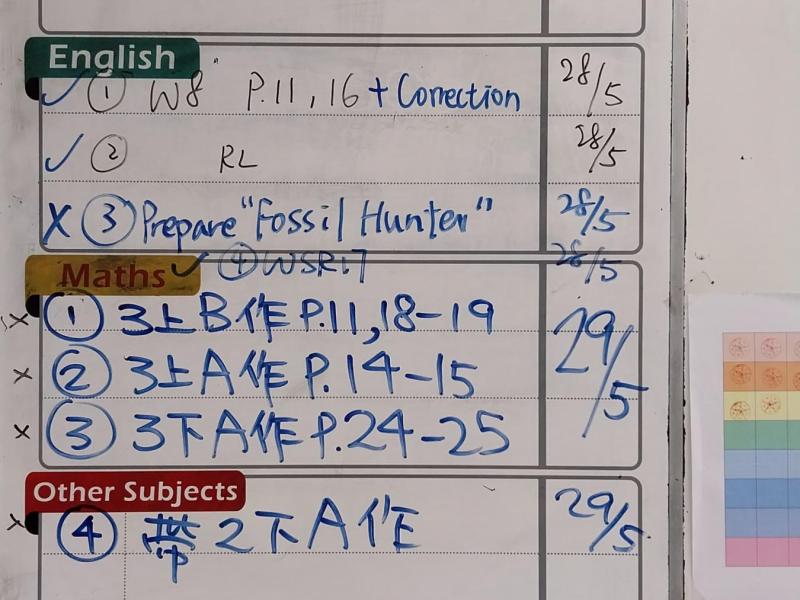 English
✓ ① W8 P.11, 16 + Correction 28/5
✓ ② RL 28/5
X ③ Prepare "Fossil Hunter" 28/5
✓ ④ WSR17 28/5
Maths
X ① 3上B作 P.11,18-19 29/5
X ② 3上A作 P.14-15
X ③ 3下A作 P.24-25
Other Subjects
X ④ 帶2下A作 29/5